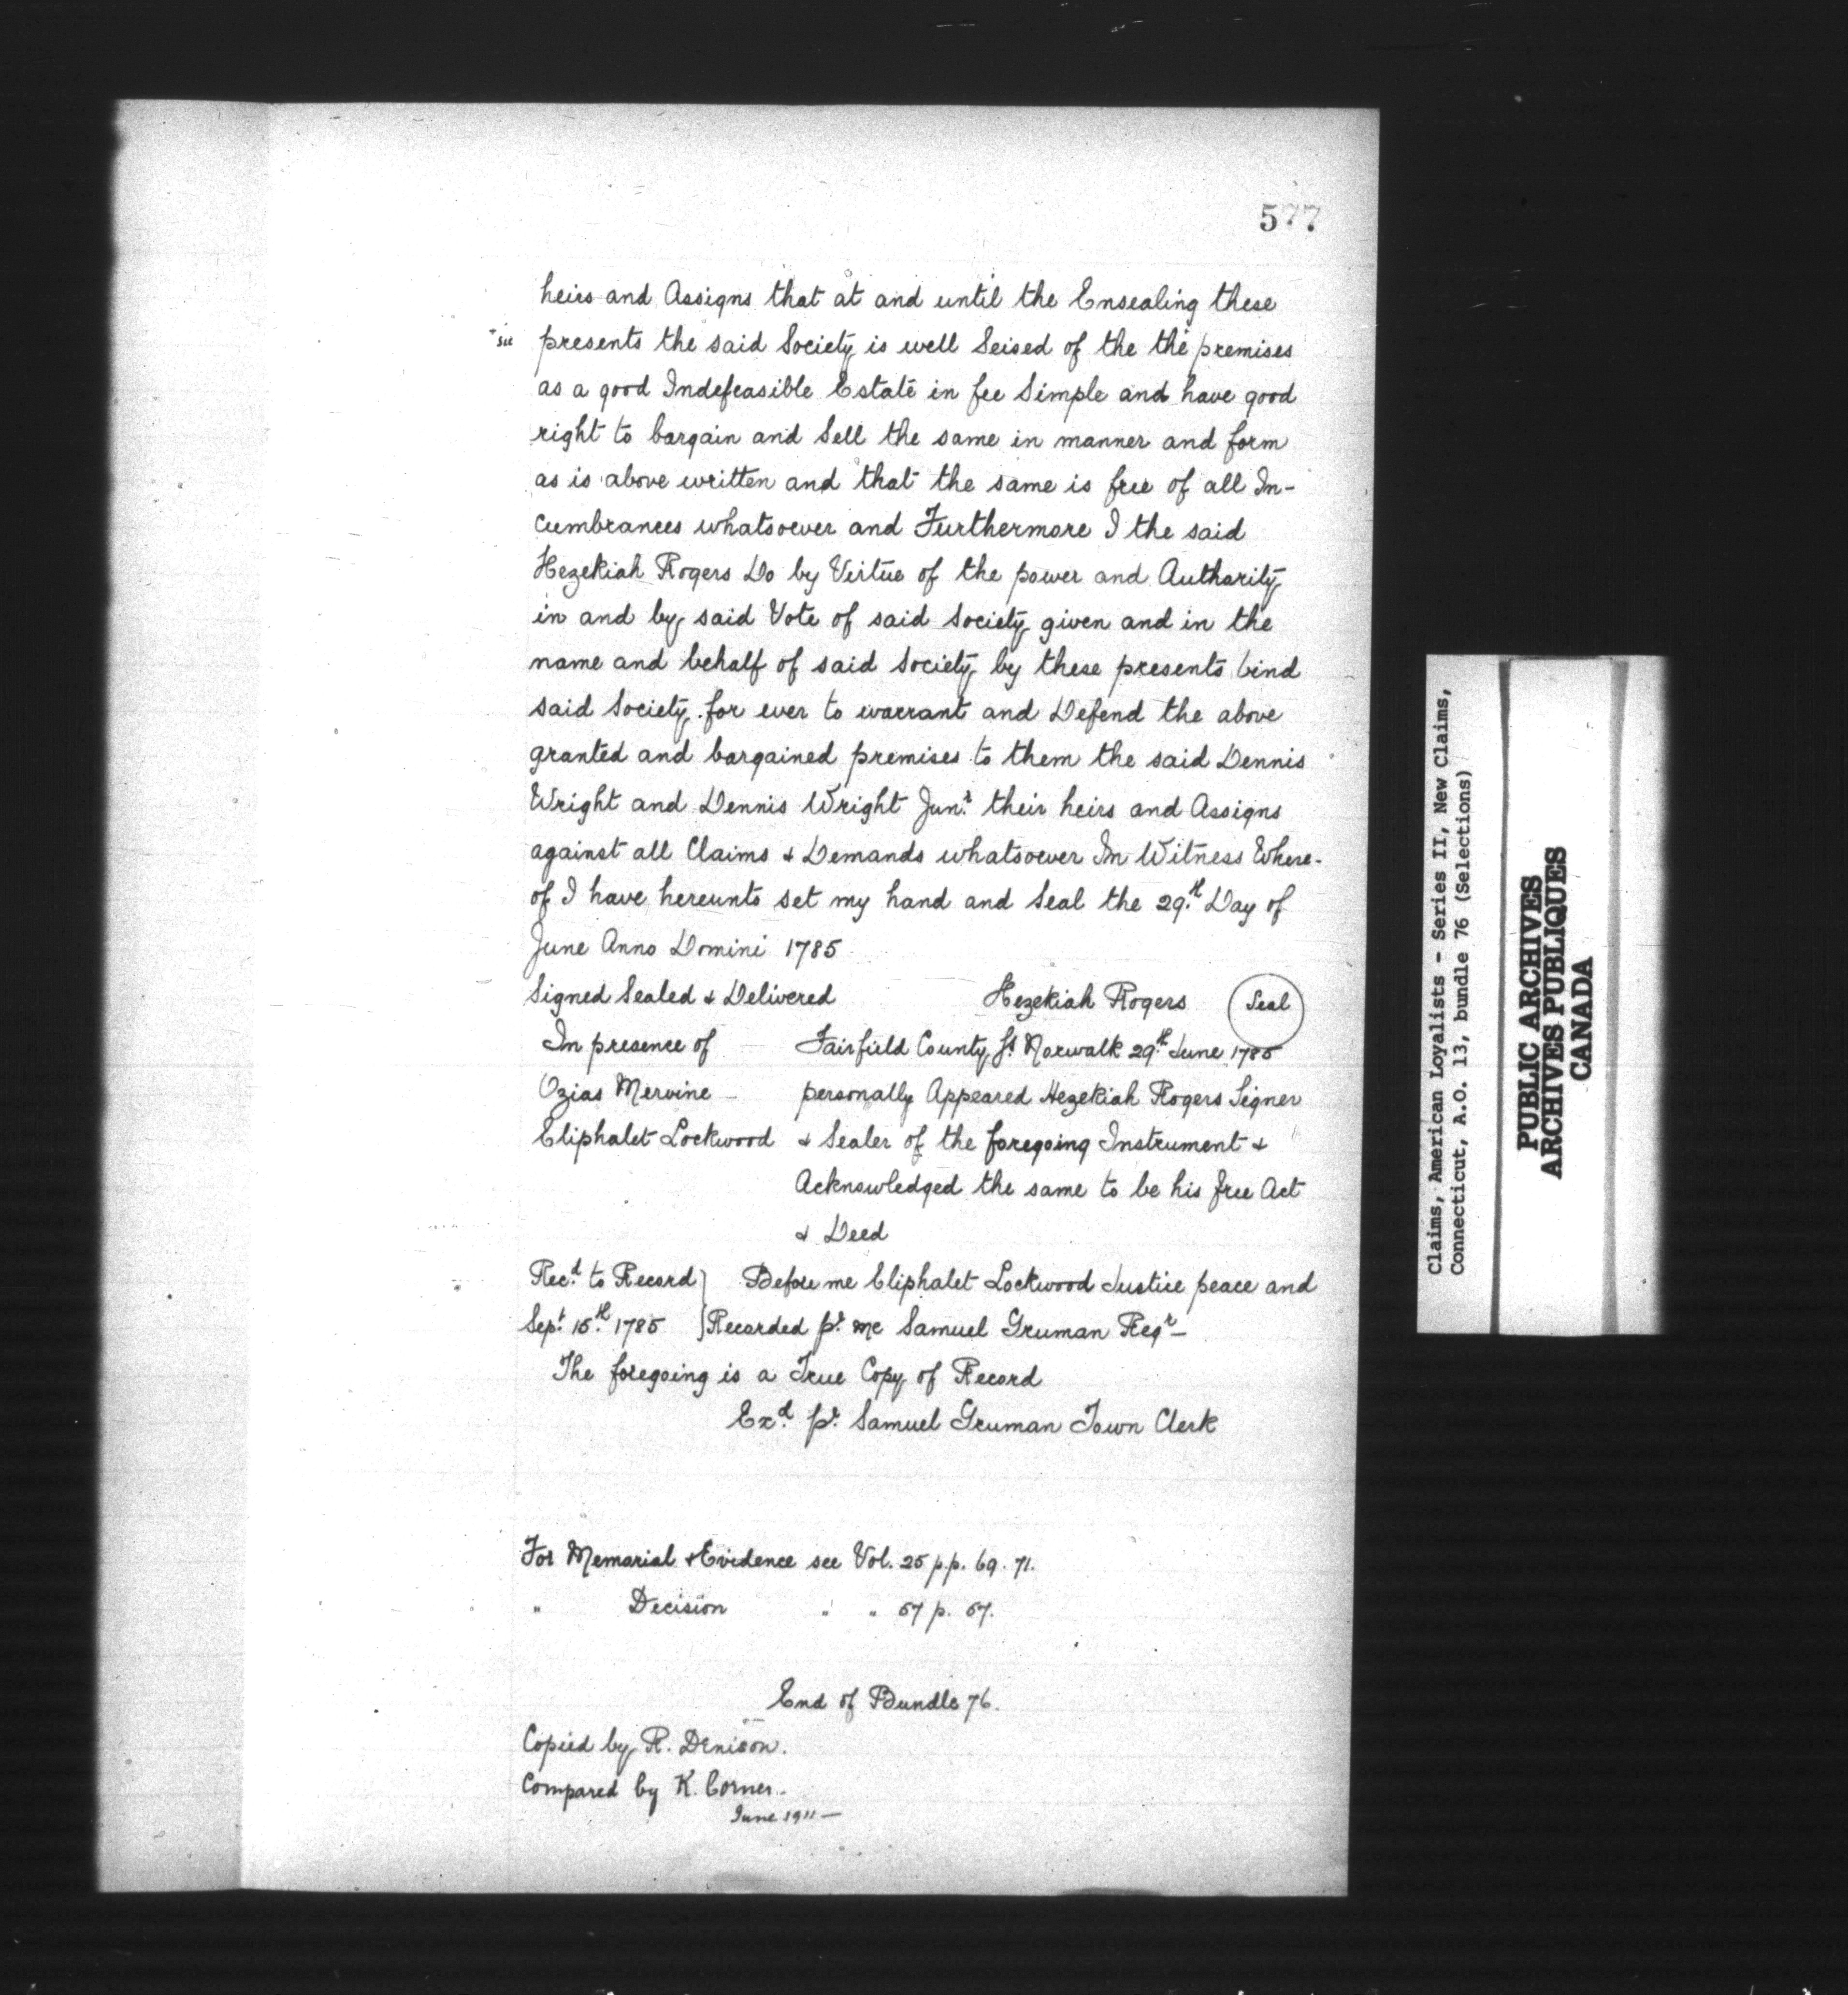 577
heirs and Assigns that at and until the Ensealing these
+ sic presents the said Society is well Seised of the the premises
as a good Indefeasible Estate in fee Simple and have good
right to bargain and Sell the same in manner and form
as is above written and that the same is free of all In-
cumbrances whatsoever and Furthermore I the said
Hezekiah Rogers Do by Virtue of the power and Authority
in and by said Vote of said Society given and in the
name and behalf of said Society by these presents bind
said Society for ever to warrant and Defend the above
granted and bargained premises to them the said Dennis
Wright and Dennis Wright Junr. their heirs and Assigns
against all Claims & Demands whatsoever In Witness Where-
of I have hereunto set my hand and Seal the 29.th Day of
June Anno Domini 1785
Signed Sealed & Delivered Hezekiah Rogers Seal
In presence of Fairfield County ss Norwalk 29.th June 1785
Ozias Mervine – personally Appeared Hezekiah Rogers Signer
Eliphalet Lockwood & Sealer of the foregoing Instrument &
Acknowledged the same to be his free Act
& Deed
Rec.d to Record } Before me Eliphalet Lockwood Justice peace and
Sept. 15.th 1785 } Recorded pr. me Samuel Gruman Regr –
The foregoing is a True Copy of Record
Ex.d pr. Samuel Gruman Town Clerk
For Memorial & Evidence see Vol. 25 p.p. 69. 71.
" Decision " " 57 p. 57.
End of Bundle 76.
Copied by R. Denison.
Compared by K. Corner.
June 1911 –
Claims, American Loyalists - Series II, New Claims,
Connecticut, A.O. 13, bundle 76 (Selections)
PUBLIC ARCHIVES
ARCHIVES PUBLIQUES
CANADA